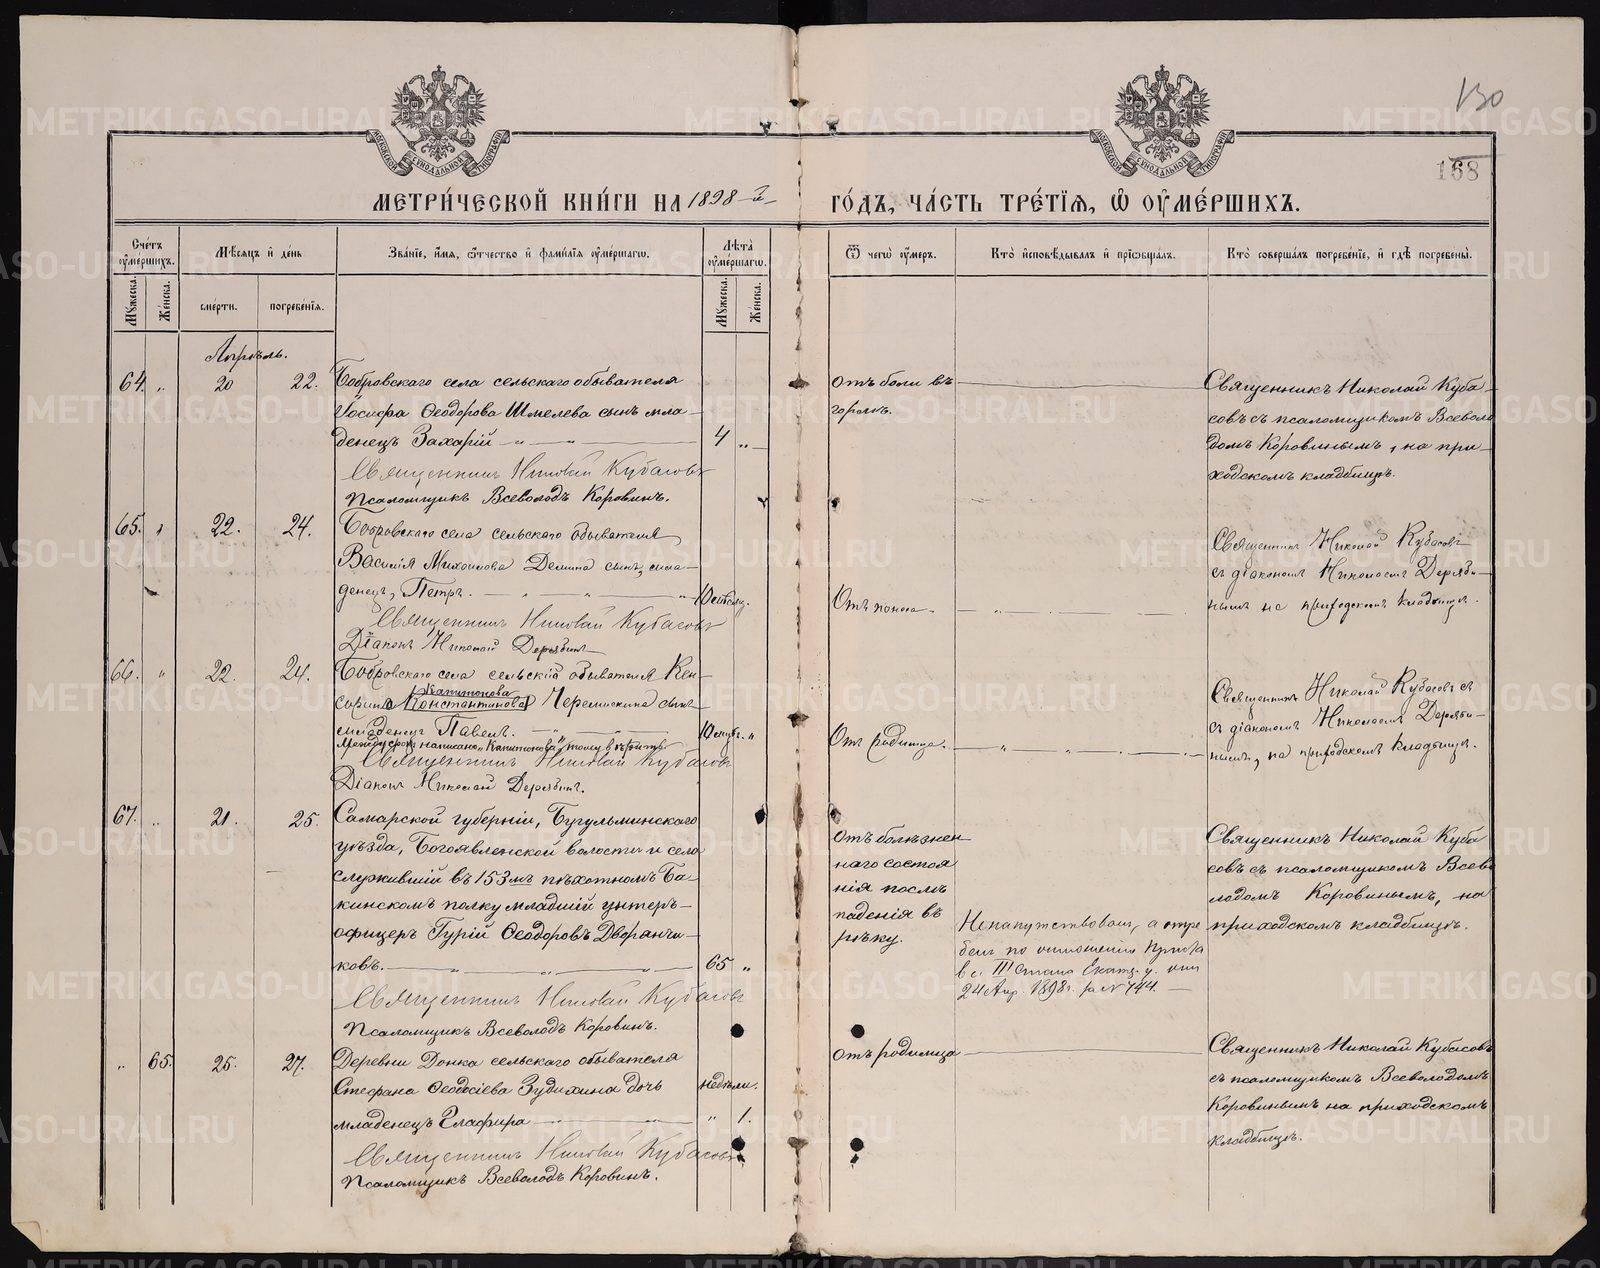 130
168
МОСКОВСКОЙ СѴНОДАЛЬНОЙ ТИПОГРАФІИ
МОСКОВСКОЙ СѴНОДАЛЬНОЙ ТИПОГРАФІИ
МЕТРИ́ЧЕСКОЙ КНИ́ГИ НА 1898-й ГО́ДЪ, ЧА́СТЬ ТРЕ́ТІѦ, Ѡ ОУМЕ́РШИХЪ.
Счетъ оумершихъ.
Мужеска.
Женска.
Мѣсяцъ и день
смерти.
погребенія.
Званіе, имя, отчество и фамилія оумершагѡ.
Лѣта оумершагѡ.
Мужеска.
Женска.
Ѿ чегѡ оумеръ.
Кто исповѣдывалъ и пріобщалъ.
Кто совершалъ погребеніе, и гдѣ погребены.
Апрѣль.
64. „ 20 22. Бобровскаго села сельскаго обывателя
Іосифа Ѳеодорова Шмелева сынъ мла-
денецъ Захарій 4 „
Священникъ Николай Кубасовъ
Псаломщикъ Всеволодъ Коровинъ.
отъ боли въ
горлѣ.
Священникъ Николай Куба-
совъ съ псаломщикомъ Всеволо
домъ Коровинымъ, на при-
ходскомъ кладбищѣ.
65. „ 22. 24. Бобровскаго села сельскаго обывателя
Василія Михайлова Демина сынъ, мла-
денецъ, Петръ.
Священникъ Николай Кубасовъ
Діаконъ Николай Дерябинъ
Отъ поноса.
Священникъ Николай Кубасовъ
съ діакономъ Николаемъ Деряби-
нымъ на приходскомъ кладбищѣ.
66. „ 22. 24. Бобровскаго села сельскій обывателя Кен-
Капитонова
сорина Константинова Черемискина сынъ
младенецъ Павелъ.
Между строкъ написано „Капитонова“, тому вѣрить
Священникъ Николай Кубасовъ
Діаконъ Николай Дерябинъ.
Отъ родимца.
Священникъ Николай Кубасовъ съ
съ діакономъ Николаемъ Деряби-
нымъ, на приходскомъ кладбищѣ.
67. „ 21. 25. Самарской губерніи, Бугульминскаго
уѣзда, Богоявленской волости и села
служившій въ 153мъ пѣхотномъ Ба-
кинскомъ полку младшій унтеръ-
офицеръ Гурій Ѳеодоровъ Дворянчи-
ковъ. 65 „
Священникъ Николай Кубасовъ
Псаломщикъ Всеволодъ Коровинъ.
отъ болѣзнен
наго состоя
нія послѣ
паденія въ
рѣку.
Ненапутствованъ, а погре
бенъ по отношенію
III Стана Екатр. у. отъ
24 Апр. 1898 г. за № 444.
Священникъ Николай Куба
совъ съ псаломщикомъ Всево
лодомъ Коровинымъ, на
приходскомъ кладбищѣ.
„ 65. 25. 27. Деревни Донка сельскаго обывателя
Стефана Ѳеодосіева Зудихина дочь недѣли.
младенецъ Глафира „ 1.
Священникъ Николай Кубасовъ
Псаломщикъ Всеволодъ Коровинъ.
отъ родимца
Священникъ Николай Кубасовъ
съ псаломщикомъ Всеволодомъ
Коровинымъ на приходскомъ
кладбищѣ.
METRIKI.GASO-URAL.RU